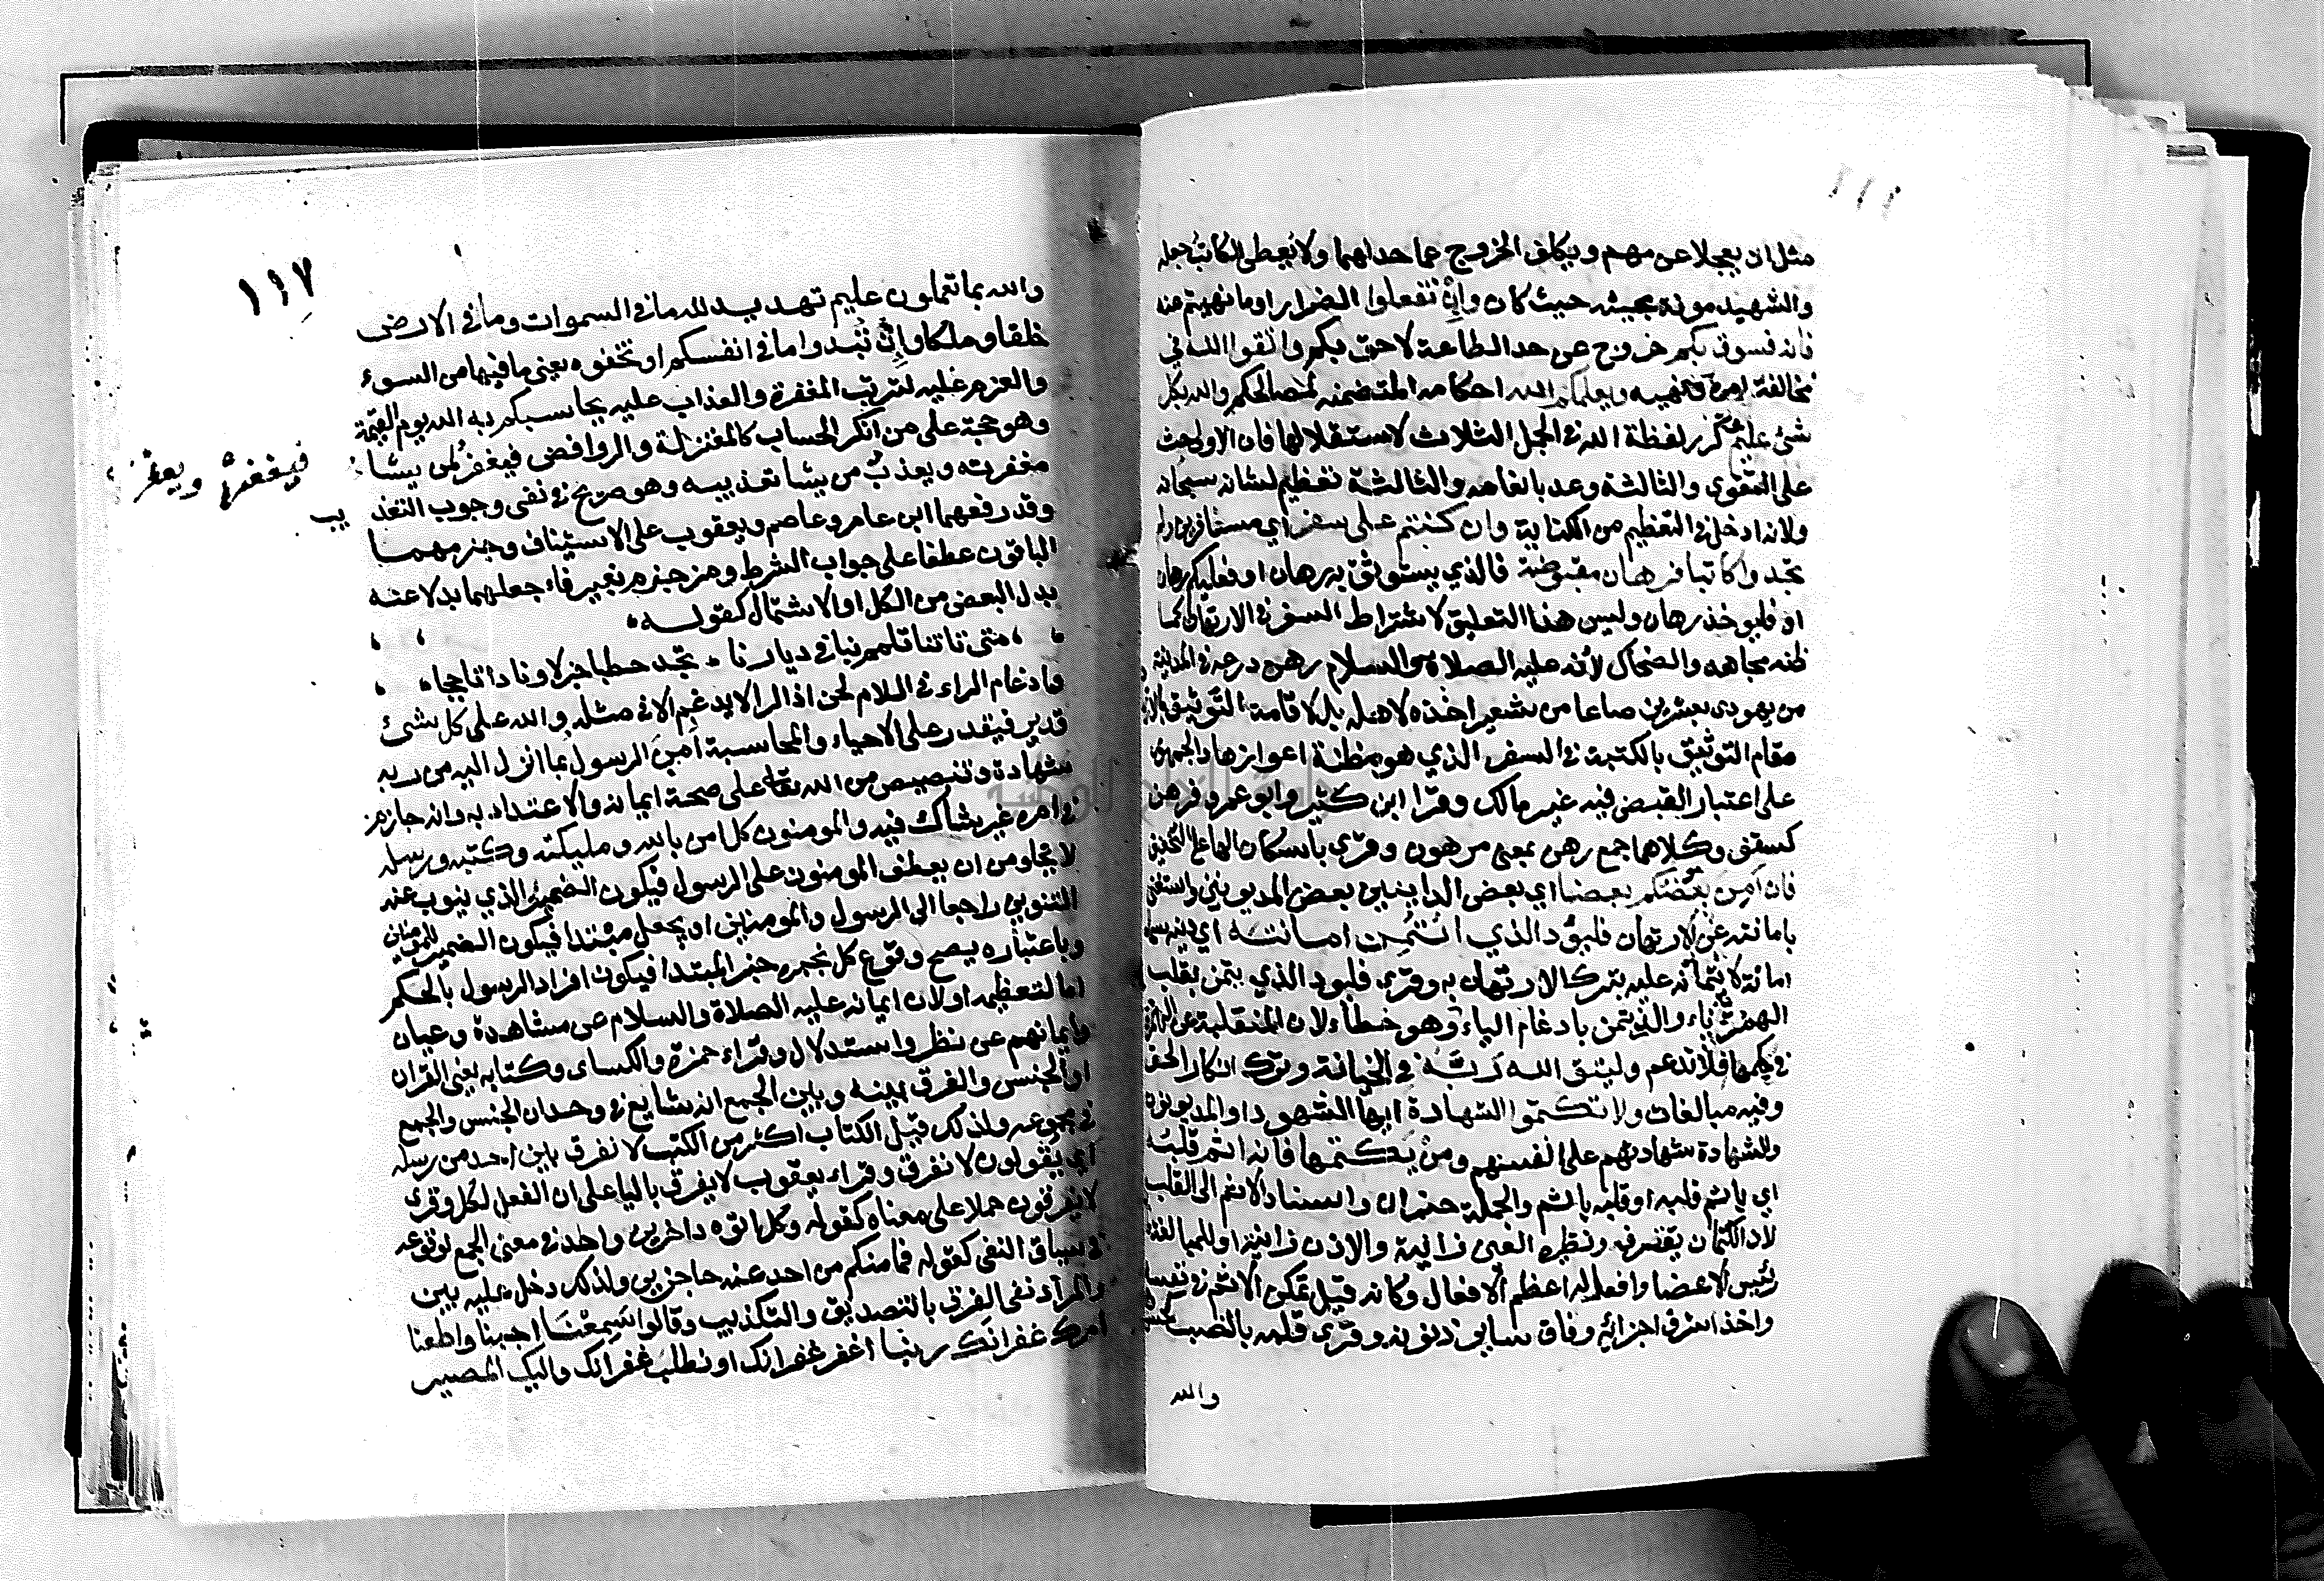 ١١٦
مثل ان يعجلا عن مهم ويكلفا الخروج عما حد لهما ولا يعطى الكاتب جعله
والشهيد مونة مجيئه حيث كان وان تفعلوا الضرار او ما نهيتم عنه
فانه فسوق بكم خروج عن حد الطاعة لاحق بكم واتقوا الله في
مخالفة امره ونهيه ويعلمكم الله احكامه المتضمنه لمصالحكم والله بكل
شئ عليم كرر لفظة الله في الجمل الثلاث لاستقلالها فان الاولى حث
على التقوى والثالثه وعد بانعامه والثالثة تعظيم لشانه سبحانه
ولانه ادخل في التعظيم من الكناية وان كنتم على سفر اي مسافرين ولم
تجدوا كاتبا فرهان مقبوضة فالذي يستوثق به رهان او فعليكم رهان
او فليوخذ رهان وليس هذا التعليق لاشتراط السفر في الارتهان كما
ظنه مجاهد والضحاك لأنه عليه الصلاة والسلام رهن درعه في المدينة
من يهودى بعشرين صاعا من شعير اخذه لاهله بل لاقامة التوثيق بالارتهان
مقام التوثيق بالكتبة في السفر الذي هو مظنة اعوازها والجمهور
على اعتبار القبض فيه غير مالك وقرا ابن كثير وابو عمرو فرهن
كسقف وكلاهما جمع رهن بمعنى مرهون وقرى باسكان الها على التخفيف
فان امن بعضكم بعضا اي بعض الداينين بعض المديونين واستغنى
بامانته عن الارتهان فليؤد الذي اؤتمن امانته اي دينه سماه
امانة لائتمانه عليه بترك الارتهان به وقرى فليود الذي يتمن بقلب
الهمزة ياء والذي تمن بادغام الياء وهو خطاء لان المنقلبة عن الهمزة
في حكمها فلا تدغم وليتق الله ربه في الخيانة وترك انكار الحق
وفيه مبالغات ولا تكتموا الشهادة ايها الشهود او المديونون
والشهادة شهادتهم على انفسهم ومن يكتمها فانه اثم قلبه
اي ياثم قلبه او قلبه ياثم والجملة خبر ان واسناد الاثم الى القلب
لان الكتمان يقترفه ونظيره العين زانية والاذن زانية او للمبالغة
رئيس الاعضا وافعاله اعظم الافعال وكانه قيل تمكن الاثم في نفسه
واخذ اشرف اجزائه وفاق سائر ذنوبه وقرى قلبه بالنصب كحسن
والله
١١٧
والله بما تعملون عليم تهديد لله ما في السموات وما في الارض
خلقا وملكا وان تبدوا ما في انفسكم او تخفوه يعنى ما فيها من السوء
والعزم عليه لترتب المغفرة والعذاب عليه يحاسبكم به الله يوم القيمة
وهو حجة على من انكر الحساب كالمعتزلة والروافض فيغفر لمن يشا
مغفرته ويعذب من يشا تعذيبه وهو صريح في نفى وجوب التعذ
يب
فيغفر ويعذب
وقد رفعهما ابن عامر وعاصم ويعقوب على الاستيناف وجزمهما
الباقون عطفا على جواب الشرط ومن جزم بغير فاء جعلهما بدلا عنه
بدل البعض من الكل او الاشتمال كقوله
متى تاتنا تلمم بنا في ديارنا تجد حطبا جزلا ونارا تاججا
وادغام الراء في اللام لحن اذ الرا لا يدغم الا في مثله والله على كل شئ
قدير فيقدر على الاحياء والمحاسبة امن الرسول بما انزل اليه من ربه
شهادة وتنصيص من الله تعالى على صحة ايمانه والاعتداد به وانه جازم
في امره غير شاك فيه والمومنون كل امن بالله ومليكته وكتبه ورسله
لا يخلو من ان يعطف المومنون على الرسول فيكون الضمير الذي ينوب عنه
التنوين راجعا الى الرسول والمومنين او يجعل مبتدا فيكون الضمير للمومنين
وباعتباره يصح وقوع كل بخبره خبر المبتدا فيكون افراد الرسول بالحكم
اما لتعظيمه او لان ايمانه عليه الصلاة والسلام عن مشاهدة وعيان
وايمانهم عن نظر واستدلال وقراء حمزة والكساى وكتابه يعنى القران
او الجنس والفرق بينه وبين الجمع انه شايع في وحدان الجنس والجمع
في جموعه ولذلك قيل الكتاب اكثر من الكتب لا نفرق بين احد من رسله
اي يقولون لا نفرق وقراء يعقوب لا يفرق باليا على ان الفعل لكل وقرى
لا يفرقون حملا على معناه كقوله وكل اتوه داخرين واحد في معنى الجمع لوقوعه
في سياق النفى كقوله فما منكم من احد عنه حاجزين ولذلك دخل عليه بين
والمراد نفى الفرق بالتصديق والتكذيب وقالوا سمعنا اجبنا واطعنا
امرك غفرانك ربنا اغفر غفرانك او نطلب غفرانك واليك المصير